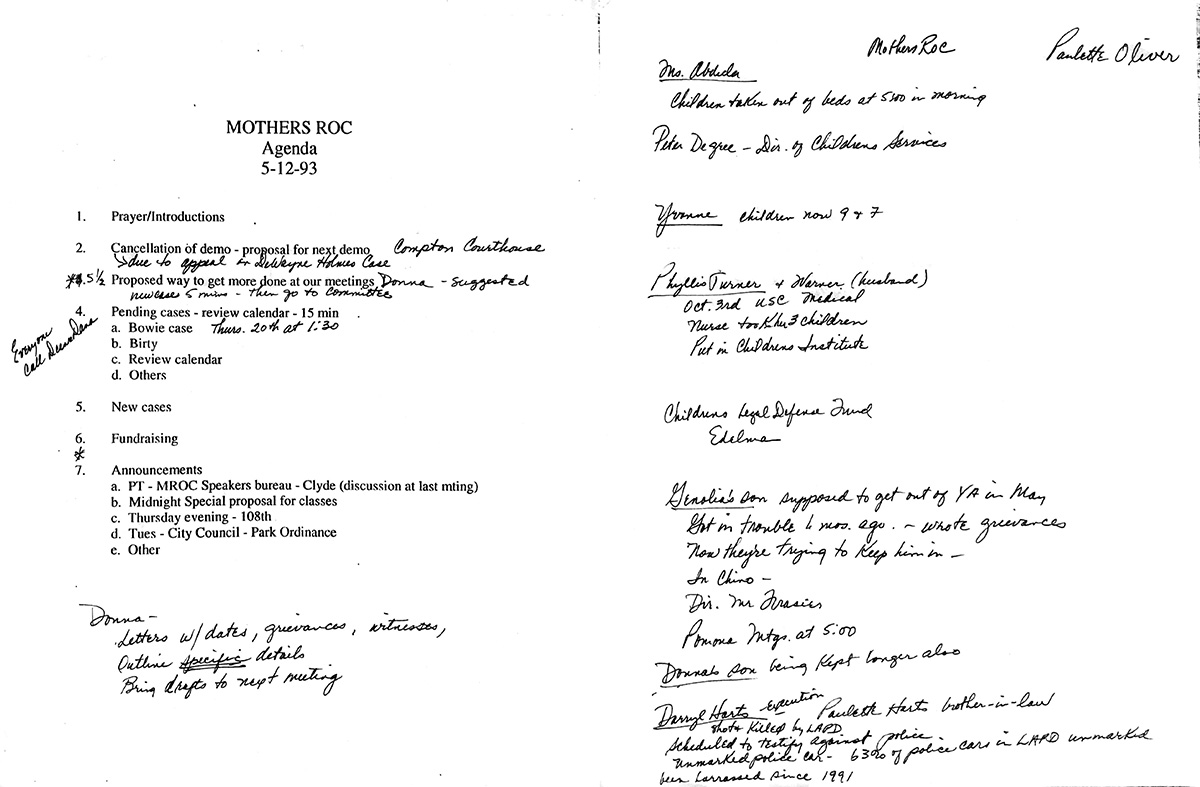 MOTHERS ROC
Agenda
5-12-93
1. Prayer/Introductions
2. Cancellation of demo - proposal for next demo Compton Courthouse
due to appeal in DeWayne Holmes Case
5½ Proposed way to get more done at our meetings Donna - Suggested
new case 5 mins - then go to Committee
4. Pending cases - review calendar - 15 min
a. Bowie case Thurs. 20th at 1:30
b. Birty
c. Review calendar
d. Others
Everyone
Call
5. New cases
6. Fundraising
*
7. Announcements
a. PT - MROC Speakers bureau - Clyde (discussion at last mting)
b. Midnight Special proposal for classes
c. Thursday evening - 108th
d. Tues - City Council - Park Ordinance
e. Other
Donna -
Letters w/dates, grievances, witnesses,
Outline specific details
Bring drafts to next meeting
Mothers Roc Paulette Oliver
Ms. Abdula
Children taken out of beds at 5:00 in morning
Peter Degree - Dir. of Childrens Services
Yvonne children now 9 & 7
Phyllis Turner & Warner (husband)
Oct. 3rd USC Medical
Nurse took her 3 children
Put in Childrens Institute
Childrens Legal Defense Fund
Edelma
Genolia's son supposed to get out of YA in May
Got in trouble 6 mos. ago. - wrote grievances
Now they're trying to keep him in -
In Chino -
Dir. Mr Frasier
Pomona Mtgs. at 5:00
Donna's son being kept longer also
Darryl Harts execution Paulette Harts brother-in-law
shot & killed by LAPD
scheduled to testify against police
unmarked police car - 63% of police cars in LAPD unmarked
been harrassed since 1991